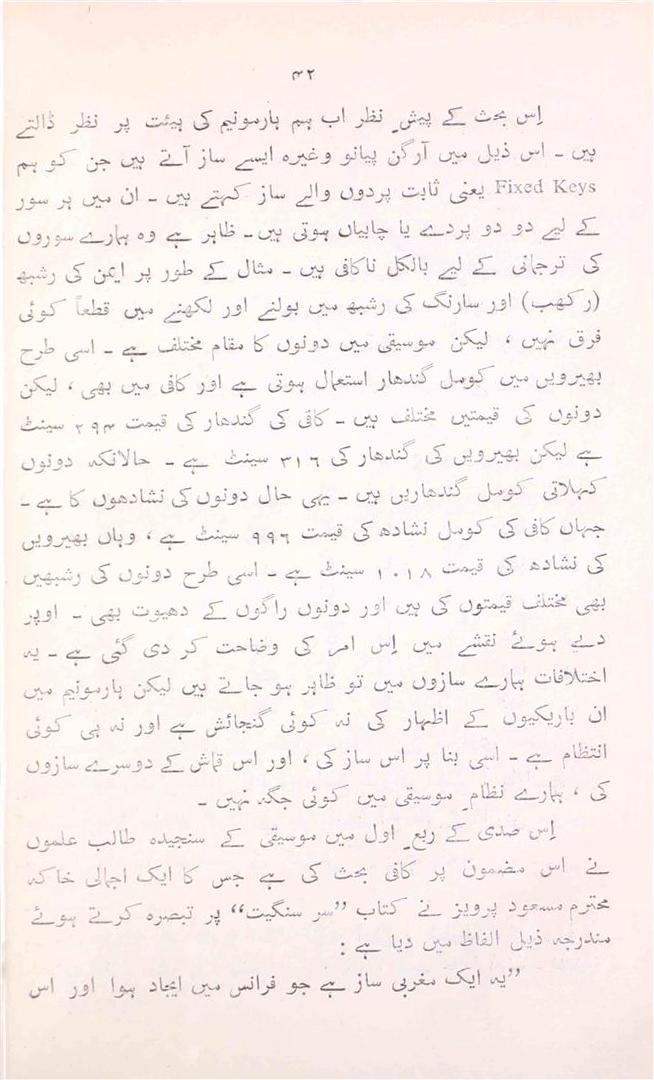 ۴۲
اِس بحث کے پیشِ نظر اب ہم ہارمونیم کی ہیئت پر نظر ڈالتے
ہیں ۔ اس ذیل میں آرگن پیانو وغیرہ ایسے ساز آتے ہیں جن کو ہم
Fixed Keys یعنی ثابت پردوں والے ساز کہتے ہیں ۔ ان میں ہر سور
کے لیے دو دو پردے یا چابیاں ہوتی ہیں ۔ ظاہر ہے وہ ہمارے سوروں
کی ترجمانی کے لیے بالکل ناکافی ہیں ۔ مثال کے طور پر ایمن کی رشبھ
(رکھب) اور سارنگ کی رشبھ میں بولنے اور لکھنے میں قطعاً کوئی
فرق نہیں ، لیکن موسیقی میں دونوں کا مقام مختلف ہے ۔ اسی طرح
بھیرویں میں کومل گندھار استعمال ہوتی ہے اور کافی میں بھی ، لیکن
دونوں کی قیمتیں مختلف ہیں ۔ کافی کی گندھار کی قیمت ۲۹۴ سینٹ
ہے لیکن بھیرویں کی گندھار کی ۳۱۶ سینٹ ہے ۔ حالانکہ دونوں
کہلاتی کومل گندھاریں ہیں ۔ یہی حال دونوں کی نشادھوں کا ہے ۔
جہاں کافی کی کومل نشادھ کی قیمت ۹۹۶ سینٹ ہے ، وہاں بھیرویں
کی نشادھ کی قیمت ۱۰۱۸ سینٹ ہے ۔ اسی طرح دونوں کی رشبھیں
بھی مختلف قیمتوں کی ہیں اور دونوں راگوں کے دھیوت بھی ۔ اوپر
دیے ہوئے نقشے میں اِس امر کی وضاحت کر دی گئی ہے ۔ یہ
اختلافات ہمارے سازوں میں تو ظاہر ہو جاتے ہیں لیکن ہارمونیم میں
ان باریکیوں کے اظہار کی نہ کوئی گنجائش ہے اور نہ ہی کوئی
انتظام ہے ۔ اسی بنا پر اس ساز کی ، اور اس قماش کے دوسرے سازوں
کی ، ہمارے نظامِ موسیقی میں کوئی جگہ نہیں ۔
اِس صدی کے ربعِ اول میں موسیقی کے سنجیدہ طالب علموں
نے اس مضمون پر کافی بحث کی ہے جس کا ایک اجمالی خاکہ
محترم مسعود پرویز نے کتاب ”سر سنگیت“ پر تبصرہ کرتے ہوئے
مندرجہ ذیل الفاظ میں دیا ہے :
”یہ ایک مغربی ساز ہے جو فرانس میں ایجاد ہوا اور اس